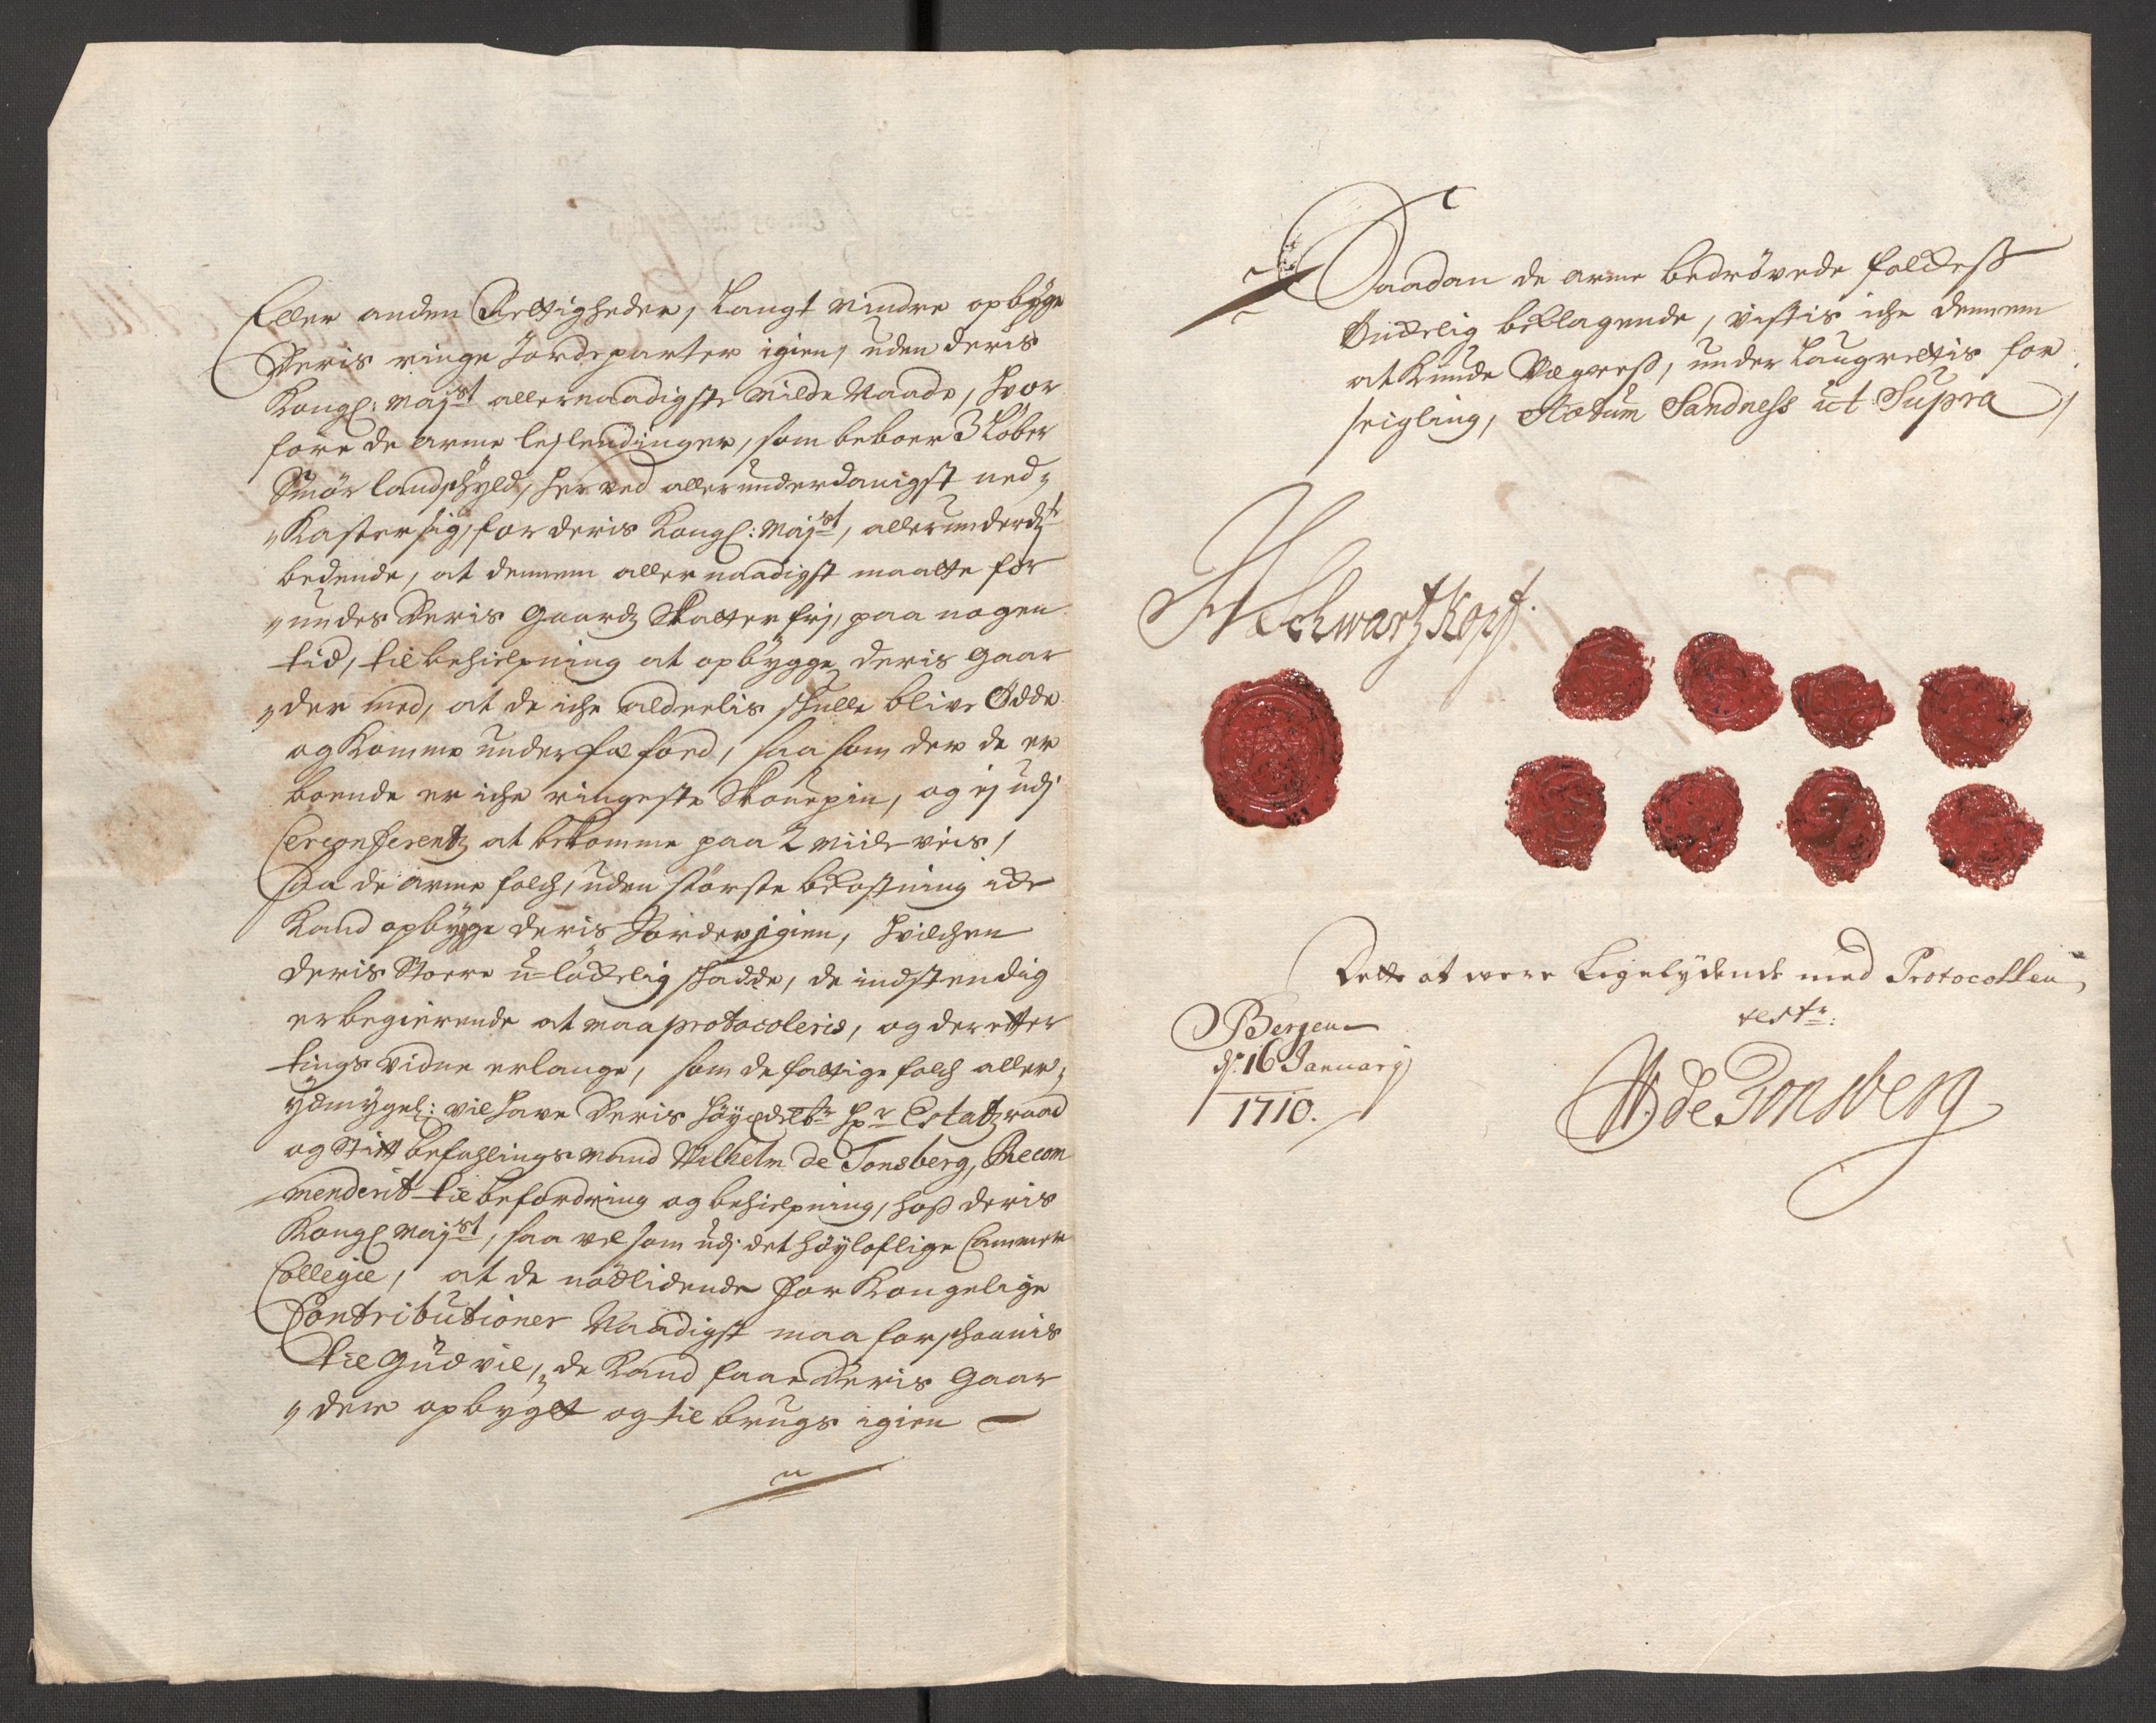 Eller anden Rettigheder, langt mindre opbyge
Deris ringe Jordeparter igien, uden deris
Kongl: Maj:st allernaadigste milde Naade, hvor
fore de arme leylendinger, som beboer 3 Løber
Smør landschyld, her ved allerunderdanigst ned-
Kaster sig, for deris Kongl: Maj:st, allerunderd:st
bedende, at dennem allernaadigst maatte for
undes Deris Gaards Skatter frj, paa nogen
tid, til behielpning at opbygge deris Gaar
der med, at de iche aldeelis schulle blive Ødde
og Komme under fæ foed, saa som der de er
boende er iche ringeste Skoug, og ej udj
Cerconferentz at bekomme paa 2 Miile veis,
saa de arme folch, uden største bekostning icke
Kand opbyge deris Jorder igien, hvilchen
deris Stoere u-løckelig schadde, de indstendig
er begierende at maa protocoleris, og der etter
tings vidne erlange, som de fattige folch aller-
ydmygel: vil have Deris Høyædelb:r Hr: Estattzraad
og Stift befahlings mand Wilhelm de Tonsberg, Recom
menderit til befordring og behielpning, hoss deris
Kongl Maj:st, saa vel som udj det høyloflige Cammer
Collegie, at de nødlidende for Kongelige
Contributioner Naadigst maa forschaanis
til Gud vil, de Kand faae Deris Gaar
der opbygt og til brugs igien
Saadan de arme bedrøvede folckess
Ønckelig beklagende, vistis iche dennem
at kunde Vægress, under Laugrettis for
seigling, Actum Sandness ut Supra
H Schwartzkopf.
Dette at were Ligelydende med Protocollen,
test:r:
Bergen
d: 16 Januarij
1710.
W. de Tonsberg